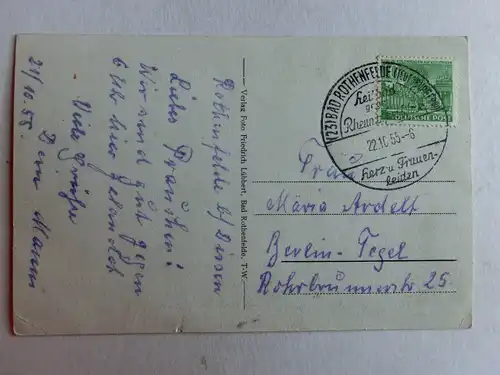 Rothenfelde b/ Dissen
Liebes Frauchen!
Wir sind gut gegen
6 Uhr hier gelandet
Viele Grüße
Dein Manni
21/10. 55.
Verlag Foto Friedrich Lübbert, Bad Rothenfelde, T.-W.
(23) BAD ROTHENFELDE (TEUTOBURGER
Heilbad
Rheuma
22.10.55-6
Herz u. Frauen-
leiden
DEUTSCHE POST
Frau
Maria Ardelt
Berlin-Tegel
Rohrbrunnerstr 25.